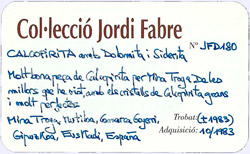 Col·lecció Jordi Fabre
Nº JFD180
CALCOPIRITA amb Dolomita i Siderita
Molt bona peça de Calcopirita per Mina Troya. De les
millors que he vist, amb els cristalls de Calcopirita grans
i molt perfectes
Mina Troya, Mutiloa, Comarca Goyerri,
Gipuzkoa, Euskadi, España
Trobat: (±1983)
Adquisició: 10/1983